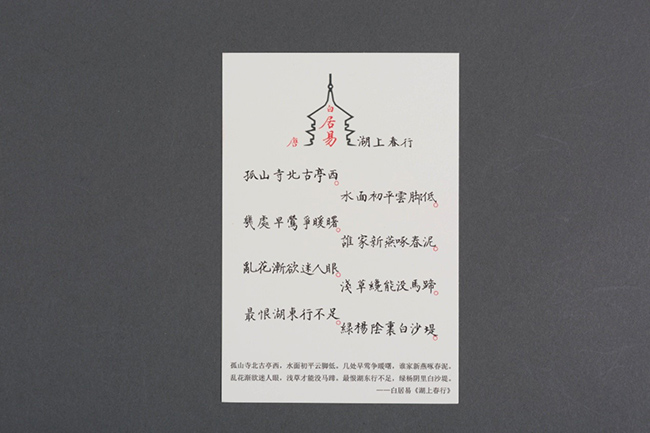 唐
白居易
湖上春行
孤山寺北古亭西。
水面初平雲脚低。
幾處早鶯爭暖曙。
誰家新燕啄春泥。
亂花漸欲迷人眼。
淺草纔能没馬蹄。
最恨湖東行不足。
綠楊陰裏白沙堤。
孤山寺北古亭西，水面初平云脚低。几处早莺争暖曙，谁家新燕啄春泥。
乱花渐欲迷人眼，浅草才能没马蹄。最恨湖东行不足，绿杨阴里白沙堤。
——白居易《湖上春行》